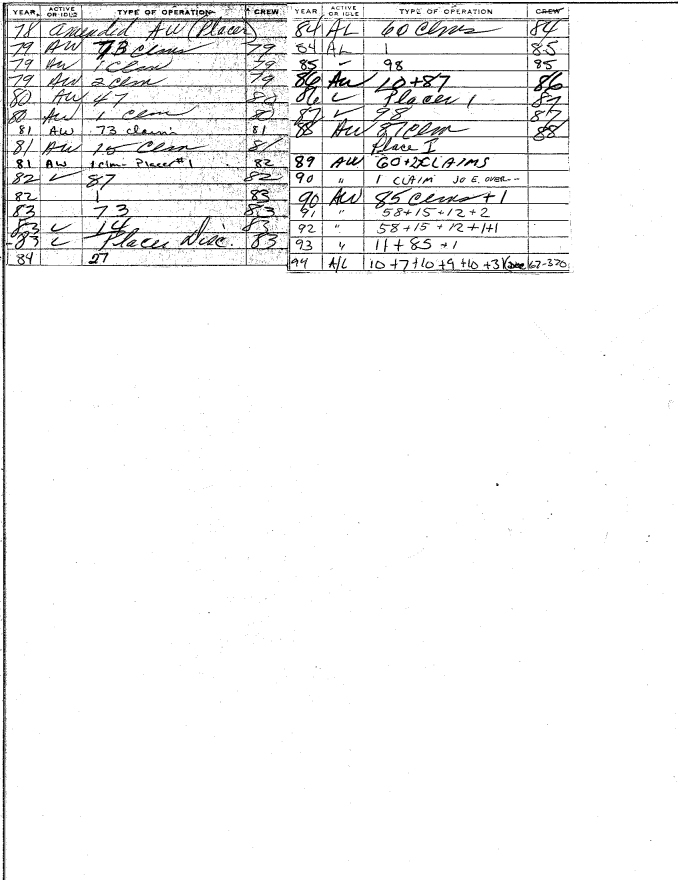 YEAR ACTIVE OR IDLE TYPE OF OPERATION CREW
78 amended AW (Placer)
79 AW 73 Clms 79
79 AW 1 Clm 79
79 AW 2 Clm 79
80 AW 47 80
80 AW 1 Clm 80
81 AW 73 claims 81
81 AW 15 Clm 81
81 AW 1 clm - Placer #1 82
82 ✓ 87 82
82 1 83
83 73 83
83 ✓ 14 83
83 ✓ Placer Disc. 83
84 27
YEAR ACTIVE OR IDLE TYPE OF OPERATION CREW
84 AL 60 Clms 84
84 AL 1 85
85 ✓ 98 85
86 AW 10+87 86
86 ✓ Placer 1 87
87 ✓ 98 87
88 AW 87 Clm 88
Place I
89 AW 60+2 CLAIMS
90 " 1 CLAIM JO E. OVER--
90 AW 85 Clms + 1
91 " 58+15+12+2
92 " 58+15+12+1+1
93 " 11+85+1
94 A/L 10+7+10+9+10+3 (see 67-320